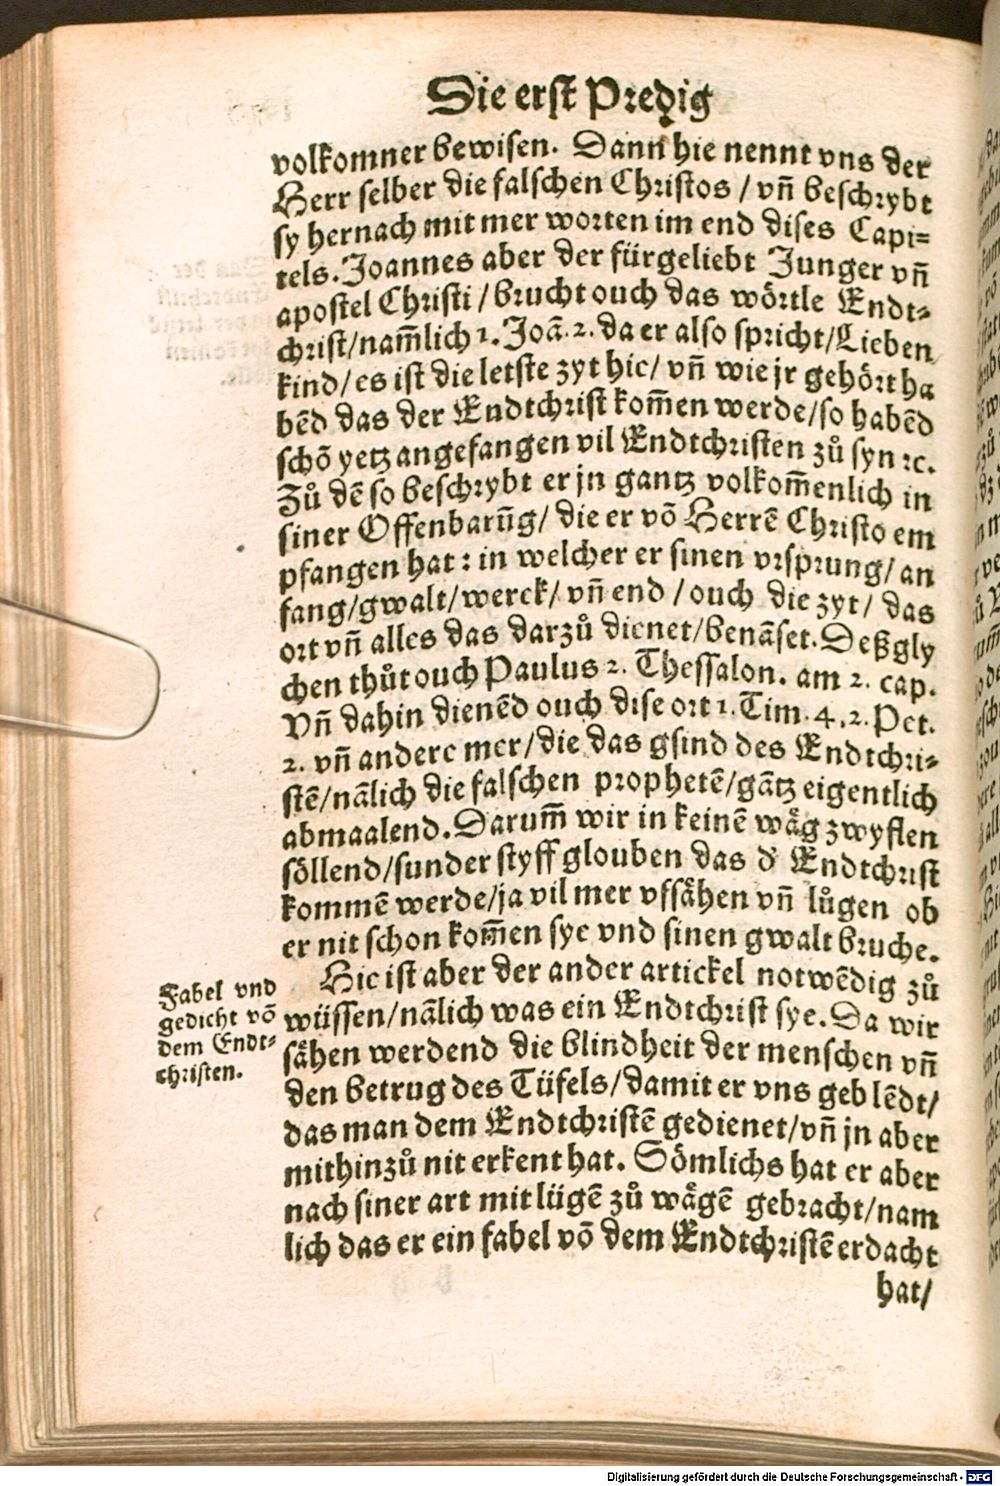 Die erst Predig
volkomner bewisen. Dann hie nennt vns der
Herr selber die falschen Christos / vñ beschrybt
sy hernach mit mer worten im end dises Capi=
tels. Joannes aber der fürgeliebt Junger vñ
apostel Christi / brucht ouch das wörtle Endt=
christ/nam̃lich 1. Joã. 2. da er also spricht/Lieben
kind/ es ist die letste zyt hie/ vñ wie jr gehört ha
bẽd das der Endtchrist kom̃en werde/so habẽd
schõ yetz angefangen vil Endtchristen zů syn ꝛc.
Zů dẽ so beschrybt er jn gantz volkom̃enlich in
siner Offenbarũg/ die er võ Herrẽ Christo em
pfangen hat : in welcher er sinen vrsprung/ an
fang/gwalt/werck/ vñ end / ouch die zyt/ das
ort vñ alles das darzů dienet/benãset. Deßgly
chen thůt ouch Paulus 2. Thessalon. am 2. cap.
Vñ dahin dienẽd ouch dise ort 1. Tim. 4. 2. Pet.
2. vñ andere mer/die das gsind des Endtchri=
stẽ/nãlich die falschen prophetẽ/gãtz eigentlich
abmaalend. Darum̃ wir in keinẽ wäg zwyflen
söllend/sunder styff glouben das d' Endtchrist
kommẽ werde/ja vil mer vfsähen vñ lůgen ob
er nit schon kom̃en sye vnd sinen gwalt bruche.
Hie ist aber der ander artickel notwẽdig zů
wüssen/nãlich was ein Endtchrist sye. Da wir
sähen werdend die blindheit der menschen vñ
den betrug des Tüfels/damit er vns geblẽdt/
das man dem Endtchristẽ gedienet/vñ jn aber
mithinzů nit erkent hat. Sömlichs hat er aber
nach siner art mit lügẽ zů wägẽ gebracht/nam
lich das er ein fabel võ dem Endtchristẽ erdacht
hat/
Fabel vnd
gedicht võ
dem Endt=
christen.
Digitalisierung gefördert durch die Deutsche Forschungsgemeinschaft - DFG